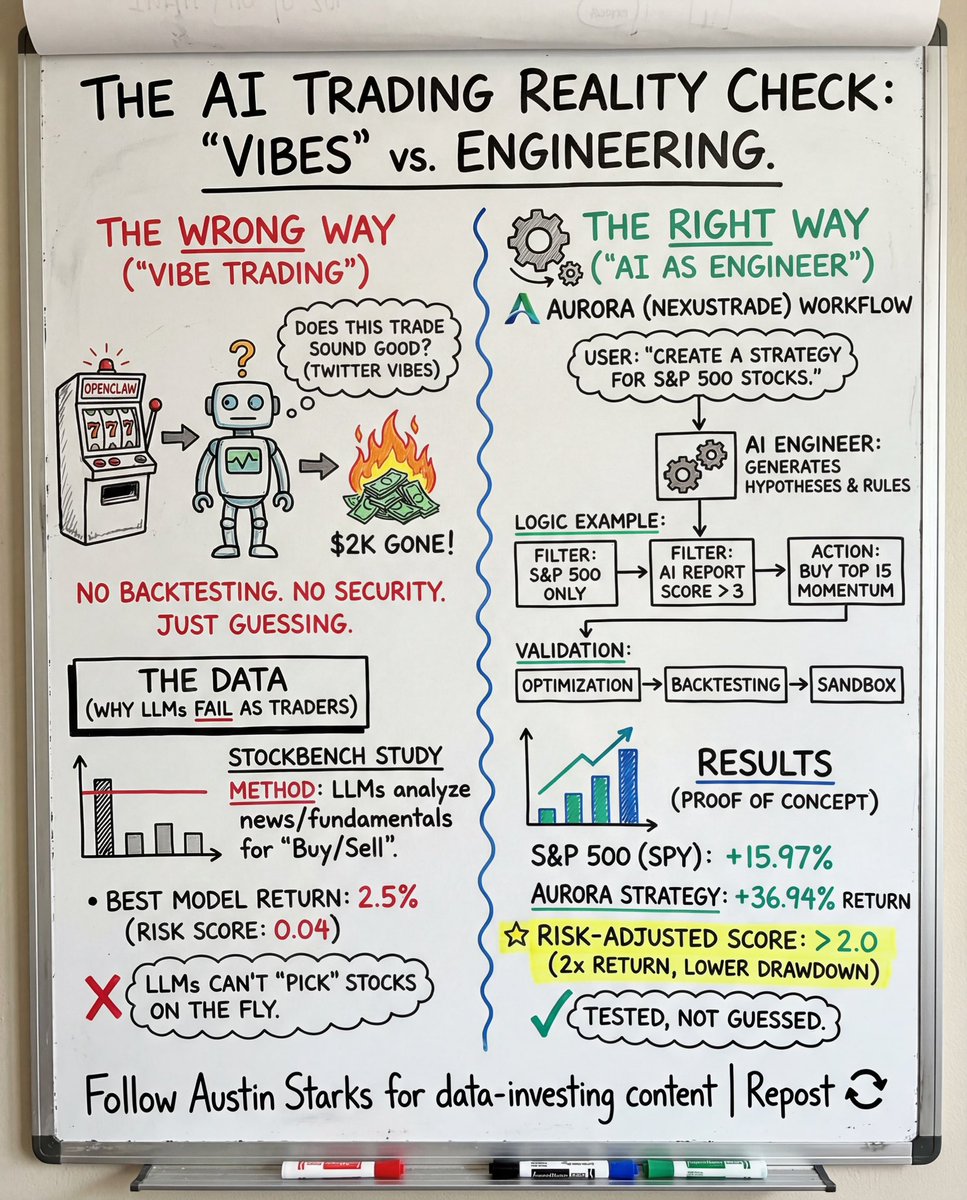 THE AI TRADING REALITY CHECK:
"VIBES" vs. ENGINEERING.
THE WRONG WAY
("VIBE TRADING")
DOES THIS TRADE
SOUND GOOD?
(TWITTER VIBES)
?
OPENCLAW
777
$2K GONE!
NO BACKTESTING. NO SECURITY.
JUST GUESSING.
THE DATA
(WHY LLMs FAIL AS TRADERS)
STOCKBENCH STUDY
METHOD: LLMs analyze
news/fundamentals
for "Buy/Sell".
• BEST MODEL RETURN: 2.5%
(RISK SCORE: 0.04)
LLMs CAN'T "PICK" STOCKS
ON THE FLY.
THE RIGHT WAY
("AI AS ENGINEER")
AURORA (NEXUSTRADE) WORKFLOW
USER: "CREATE A STRATEGY
FOR S&P 500 STOCKS."
AI ENGINEER:
GENERATES
HYPOTHESES & RULES
LOGIC EXAMPLE:
FILTER:
S&P 500
ONLY
FILTER:
AI REPORT
SCORE > 3
ACTION:
BUY TOP 15
MOMENTUM
VALIDATION:
OPTIMIZATION
BACKTESTING
SANDBOX
RESULTS
(PROOF OF CONCEPT)
S&P 500 (SPY): +15.97%
AURORA STRATEGY: +36.94% RETURN
RISK-ADJUSTED SCORE: > 2.0
(2x RETURN, LOWER DRAWDOWN)
TESTED, NOT GUESSED.
Follow Austin Starks for data-investing content | Repost